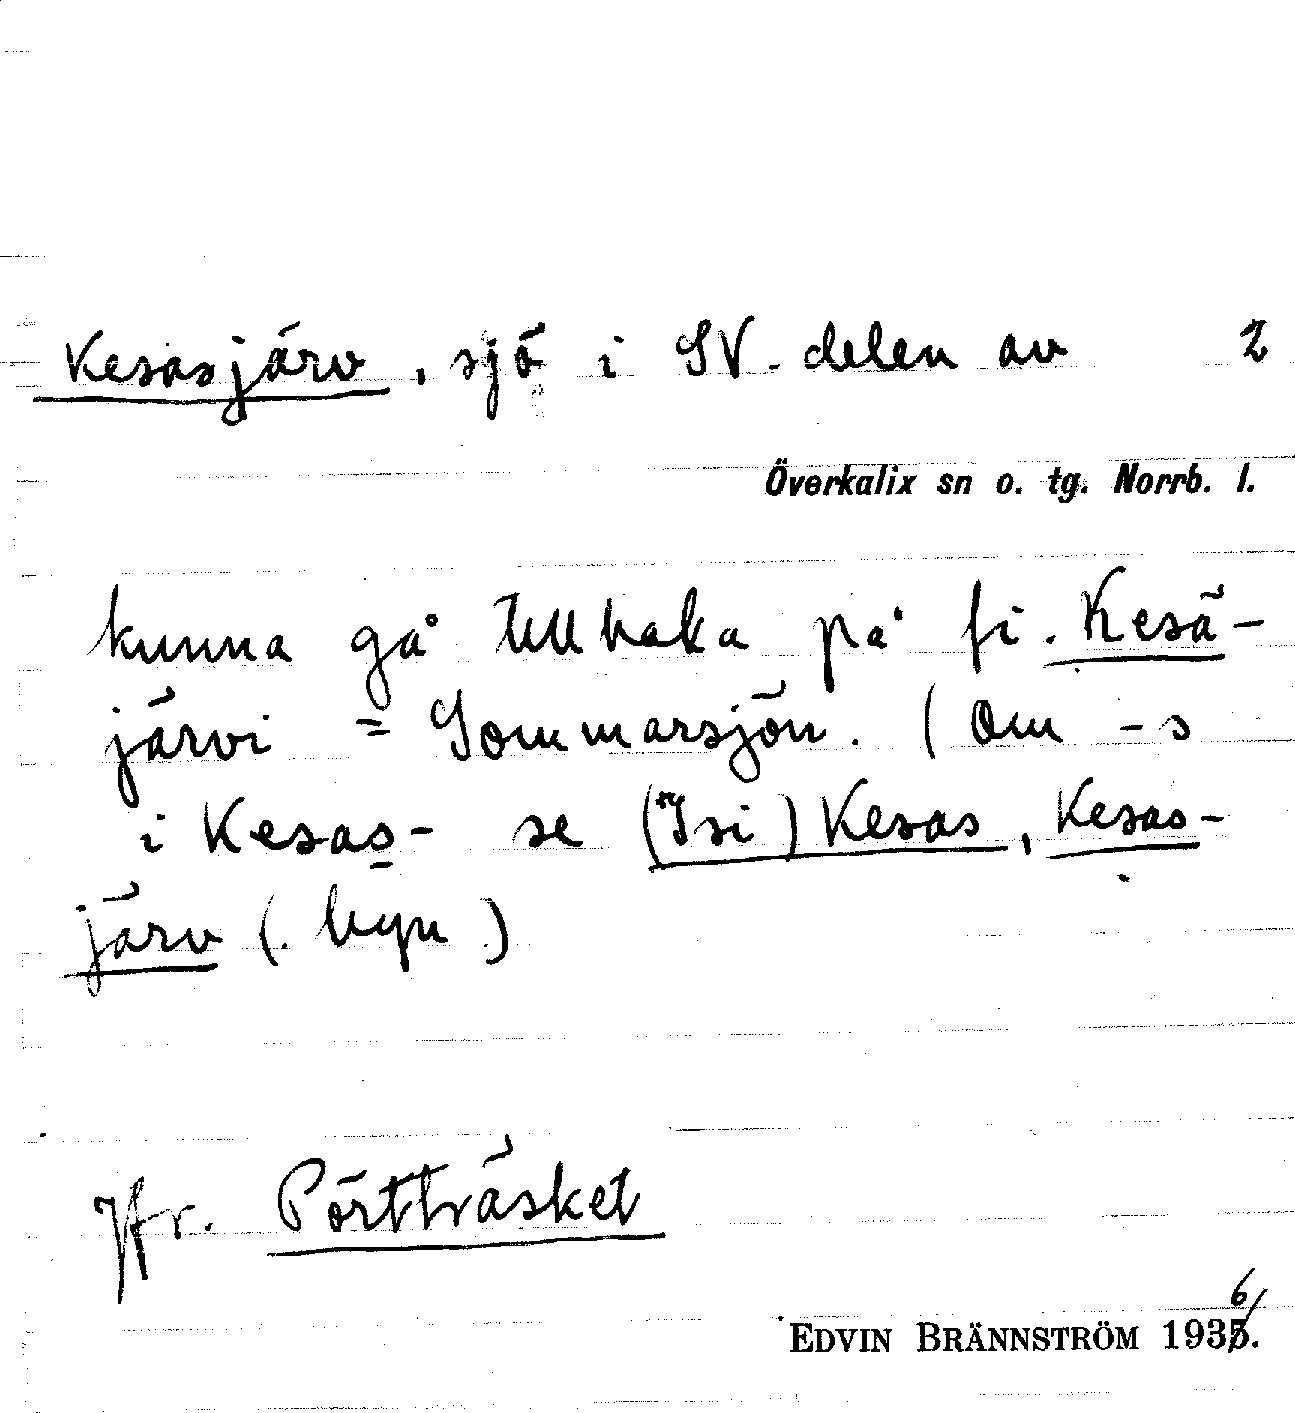 Kesasjärv, sjö i SV. delen av 2
Överkalix sn o. tg. Norrb. l.
kunna gå tillbaka på fi. Kesä-
järvi = Sommarsjön. (Om -s
i Kesas- se (Isi)Kesas, Kesas-
järv (byn)
Jfr. Pörtträsket
EDVIN BRÄNNSTRÖM 1936.